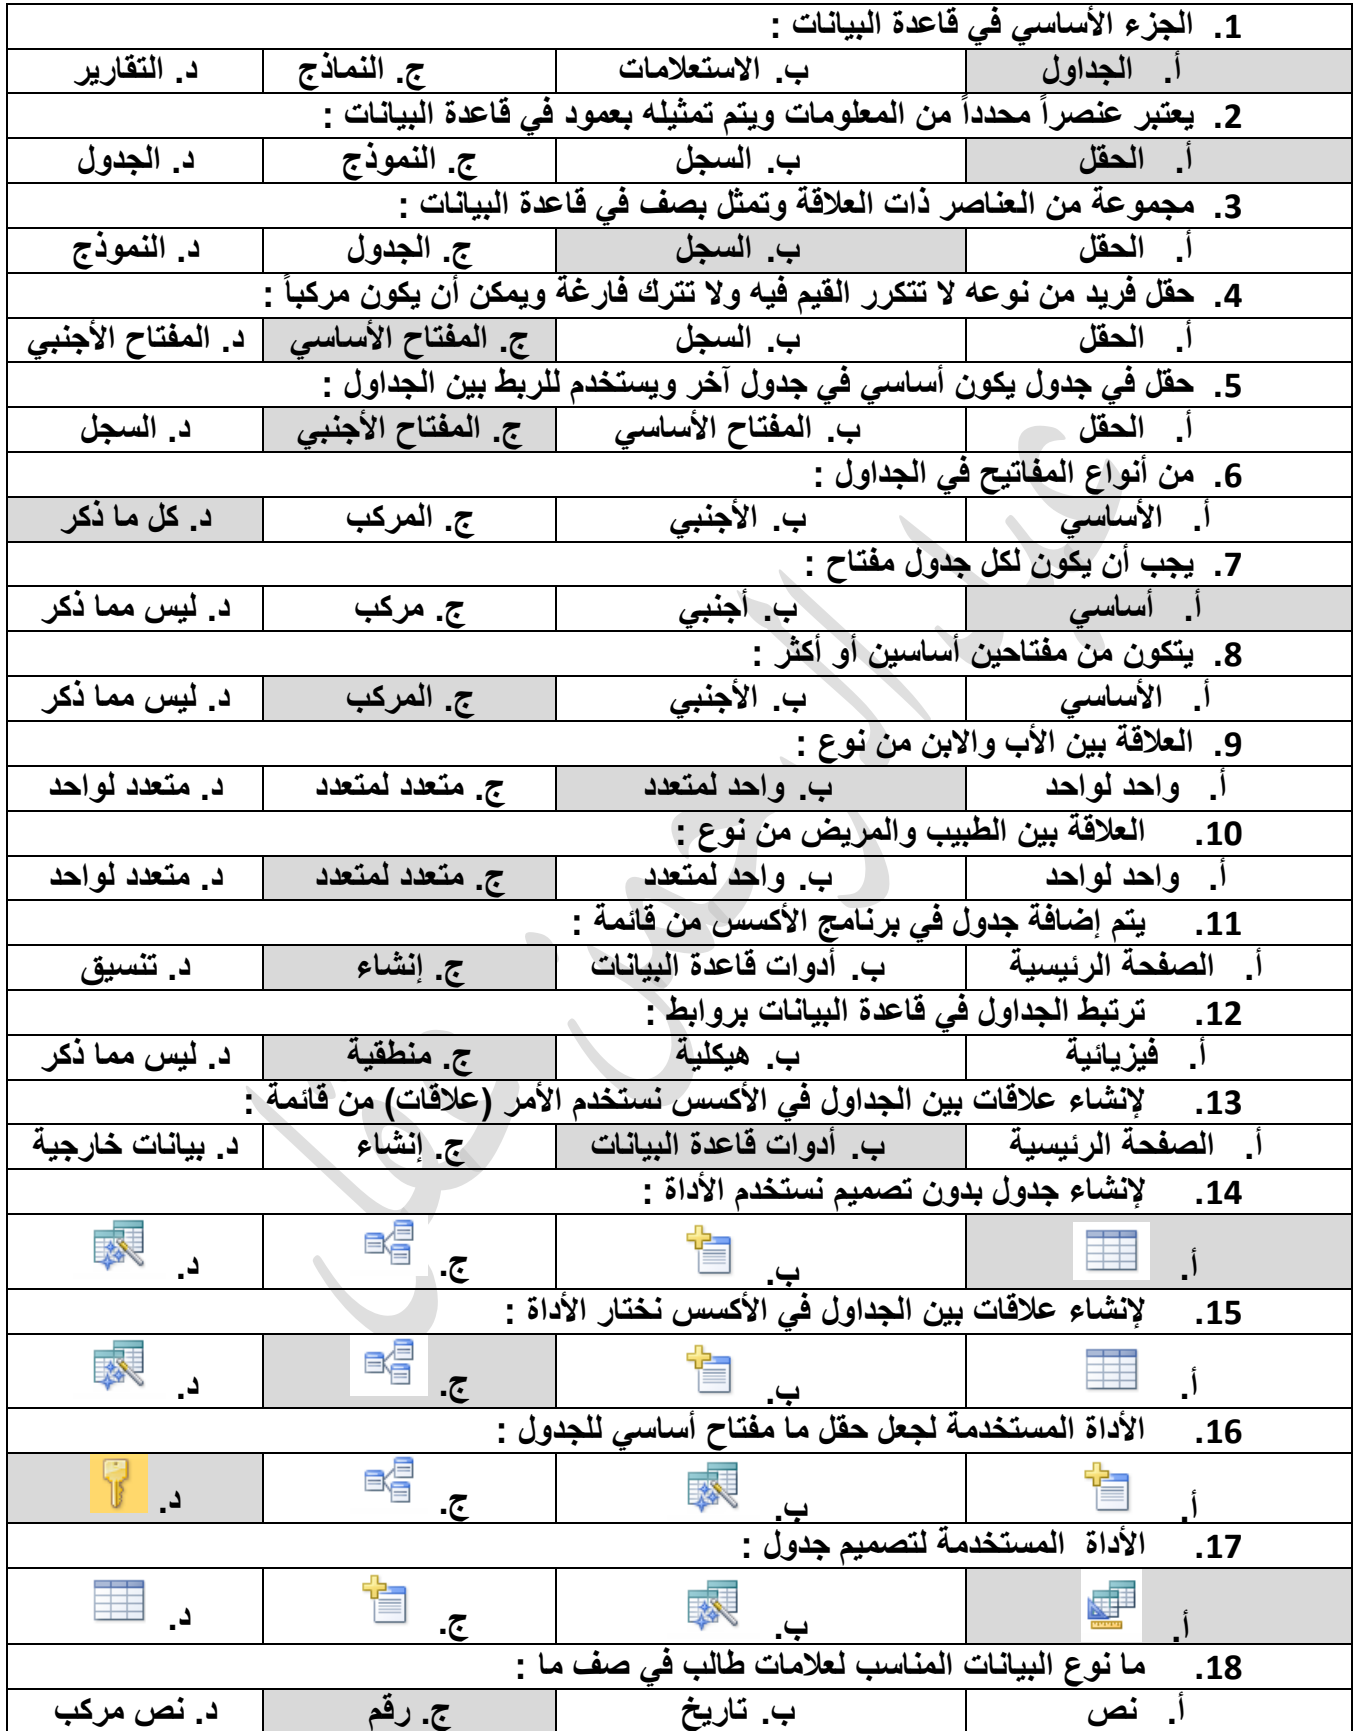 1. الجزء الأساسي في قاعدة البيانات :
أ. الجداول ب. الاستعلامات ج. النماذج د. التقارير
2. يعتبر عنصراً محدداً من المعلومات ويتم تمثيله بعمود في قاعدة البيانات :
أ. الحقل ب. السجل ج. النموذج د. الجدول
3. مجموعة من العناصر ذات العلاقة وتمثل بصف في قاعدة البيانات :
أ. الحقل ب. السجل ج. الجدول د. النموذج
4. حقل فريد من نوعه لا تتكرر القيم فيه ولا تترك فارغة ويمكن أن يكون مركباً :
أ. الحقل ب. السجل ج. المفتاح الأساسي د. المفتاح الأجنبي
5. حقل في جدول يكون أساسي في جدول آخر ويستخدم للربط بين الجداول :
أ. الحقل ب. المفتاح الأساسي ج. المفتاح الأجنبي د. السجل
6. من أنواع المفاتيح في الجداول :
أ. الأساسي ب. الأجنبي ج. المركب د. كل ما ذكر
7. يجب أن يكون لكل جدول مفتاح :
أ. أساسي ب. أجنبي ج. مركب د. ليس مما ذكر
8. يتكون من مفتاحين أساسين أو أكثر :
أ. الأساسي ب. الأجنبي ج. المركب د. ليس مما ذكر
9. العلاقة بين الأب والابن من نوع :
أ. واحد لواحد ب. واحد لمتعدد ج. متعدد لمتعدد د. متعدد لواحد
10. العلاقة بين الطبيب والمريض من نوع :
أ. واحد لواحد ب. واحد لمتعدد ج. متعدد لمتعدد د. متعدد لواحد
11. يتم إضافة جدول في برنامج الأكسس من قائمة :
أ. الصفحة الرئيسية ب. أدوات قاعدة البيانات ج. إنشاء د. تنسيق
12. ترتبط الجداول في قاعدة البيانات بروابط :
أ. فيزيائية ب. هيكلية ج. منطقية د. ليس مما ذكر
13. لإنشاء علاقات بين الجداول في الأكسس نستخدم الأمر (علاقات) من قائمة :
أ. الصفحة الرئيسية ب. أدوات قاعدة البيانات ج. إنشاء د. بيانات خارجية
14. لإنشاء جدول بدون تصميم نستخدم الأداة :
أ. ب. ج. د.
15. لإنشاء علاقات بين الجداول في الأكسس نختار الأداة :
أ. ب. ج. د.
16. الأداة المستخدمة لجعل حقل ما مفتاح أساسي للجدول :
أ. ب. ج. د.
17. الأداة المستخدمة لتصميم جدول :
أ. ب. ج. د.
18. ما نوع البيانات المناسب لعلامات طالب في صف ما :
أ. نص ب. تاريخ ج. رقم د. نص مركب